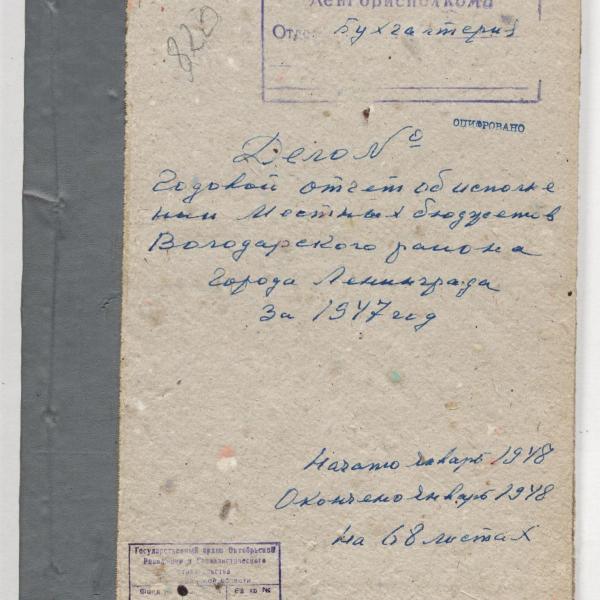 Ленгорисполкома
Отдел Бухгалтерия
820
ОЦИФРОВАНО
Дело №
Годовой отчет об исполне
нии Местных бюджетов
Володарского района
Города Ленинграда
За 1947 год
Начато январь 1948
Окончено январь 1948
На 68 листах
Государственный архив Октябрьской
Революции и Социалистического
строительства
области
Фонд №